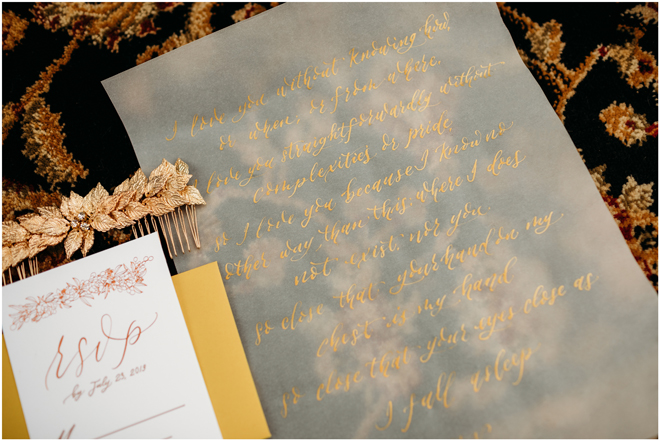 I love you without knowing how,
or when, or from where.
I love you straightforwardly without
complexities or pride,
so I love you because I know no
other way than this: where I does
not exist, nor you.
so close that your hand on my
chest is my hand
so close that your eyes close as
I fall asleep
rsvp
by July 23, 2019